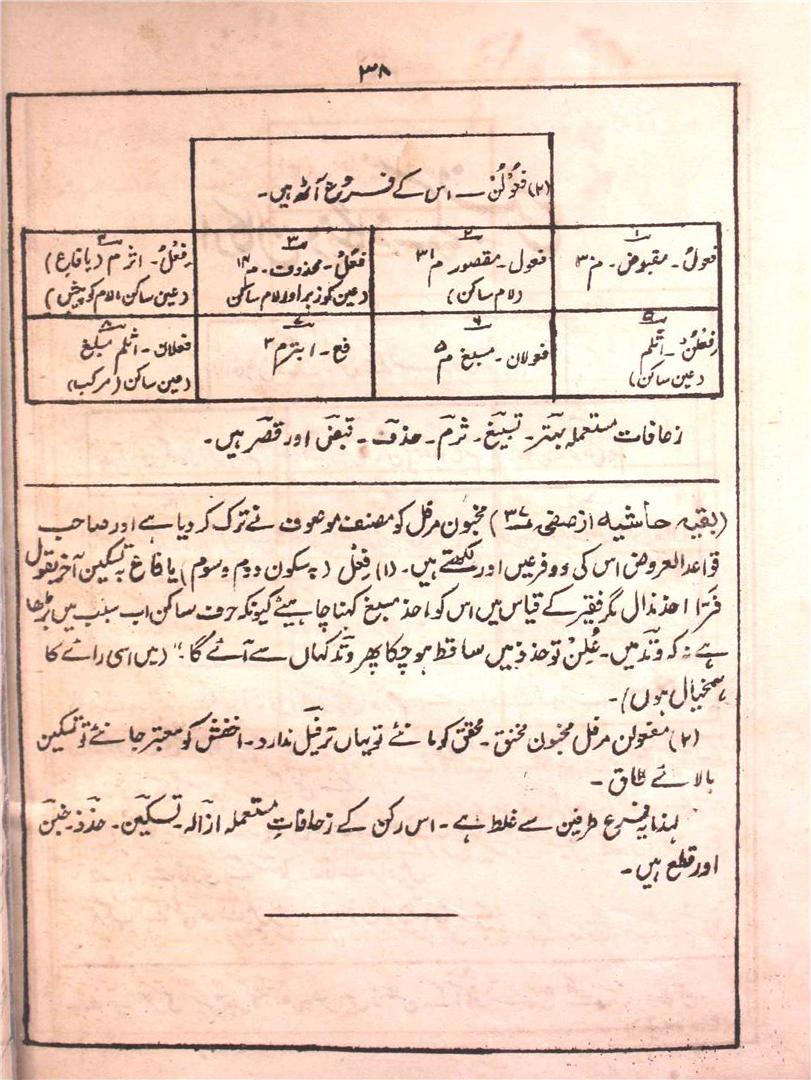 ۳۸
(۲) فَعُوْلُنْ ۔ اس کے فروع آٹھ ہیں۔
۱
فعولُ ۔ مقبوض ۔ م۳
۲
فعول ۔ مقصور م۳۱
(لام ساکن)
۳
فَعَلْ ۔ محذوف ۔ م۱۳
(عین کو زبر اور لام ساکن
۴
فِعْلُ ۔ اثرم (یا فاع)
(عین ساکن، لام کو پیش)
۵
فِعْلُنْ ۔ اثلم
(عین ساکن)
۶
فعولان ۔ مسبغ م۵
۷
فع ۔ ابتر م۲
۸
فعلان ۔ اثلم مسبغ
(عین ساکن (مرکب)
زحافات مستعملہ بتر ۔ تسبیغ ۔ ثرم ۔ حذف ۔ قبض اور قصر ہیں۔
(بقیہ حاشیہ از صفحہ ۳۷) مخبون مرفل کو مصنف موصوف نے ترک کر دیا ہے اور صاحب
قواعد العروض اس کی دو فرعیں اور لکھتے ہیں۔ (۱) فِعْلْ (بہ سکون دوم و سوم) یا فاع بہ تسکین آخر بقول
فرّا احذ مذال مگر فقیر کے قیاس میں اس کو احذ مسبغ کہنا چاہیئے کیونکہ حرف ساکن اب سبب میں بڑھا
ہے نہ کہ وتد میں۔ عِلُنْ تو حذذ میں ساقط ہو چکا پھر وتد کہاں سے آئے گا۔" (میں اسی رائے کا
ہمخیال ہوں)۔
(۲) مفعولن مرفل مخبون مخنق ۔ محقق کو مانئے تو یہاں ترفیل ندارد۔ اخفش کو معتبر جانئے تو تسکین
بالائے طاق ۔
لہذا یہ فرع طرفین سے غلط ہے۔ اس رکن کے زحافاتِ مستعملہ ازالہ ۔ تسکین ۔ حذذ ۔ خبن
اور قطع ہیں۔